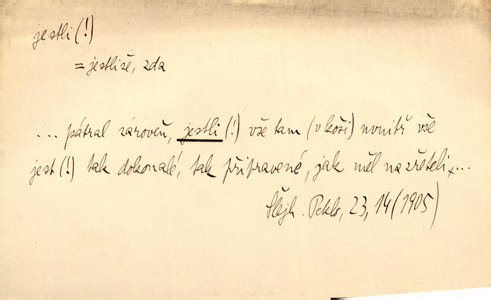 jestli (!)
= jestliže, zda
... pátral zároveň, jestli (!) vše tam (v koši) uvnitř vše
jest (!) tak dokonalé, tak připravené, jak měl na zřeteli, ...
Šlejh. Peklo, 23, 14 (1905)